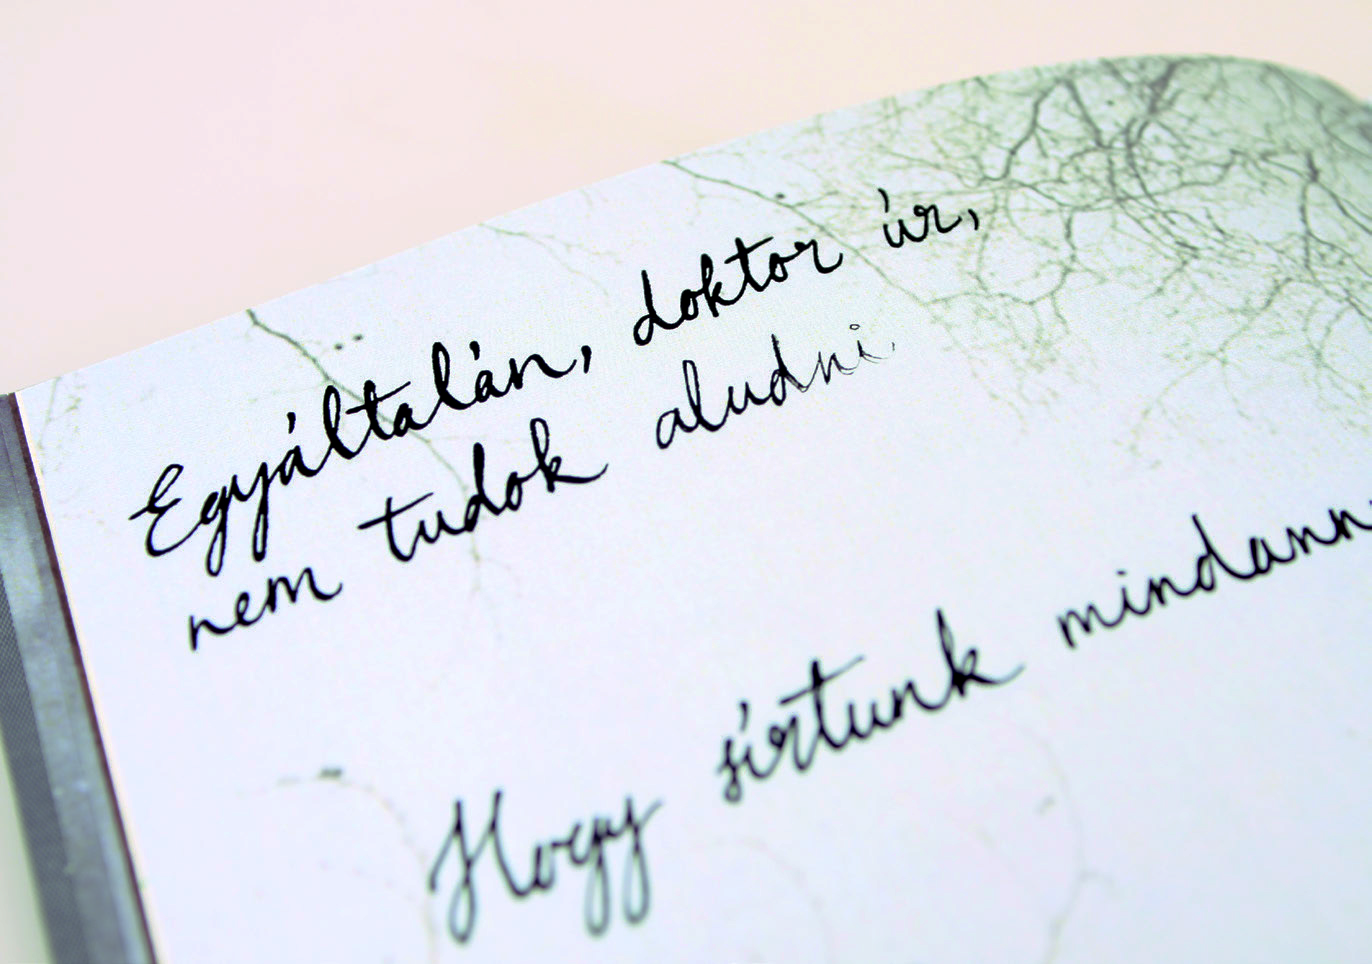 Egyáltalán, doktor úr,
nem tudok aludni.
Hogy sírtunk mindann